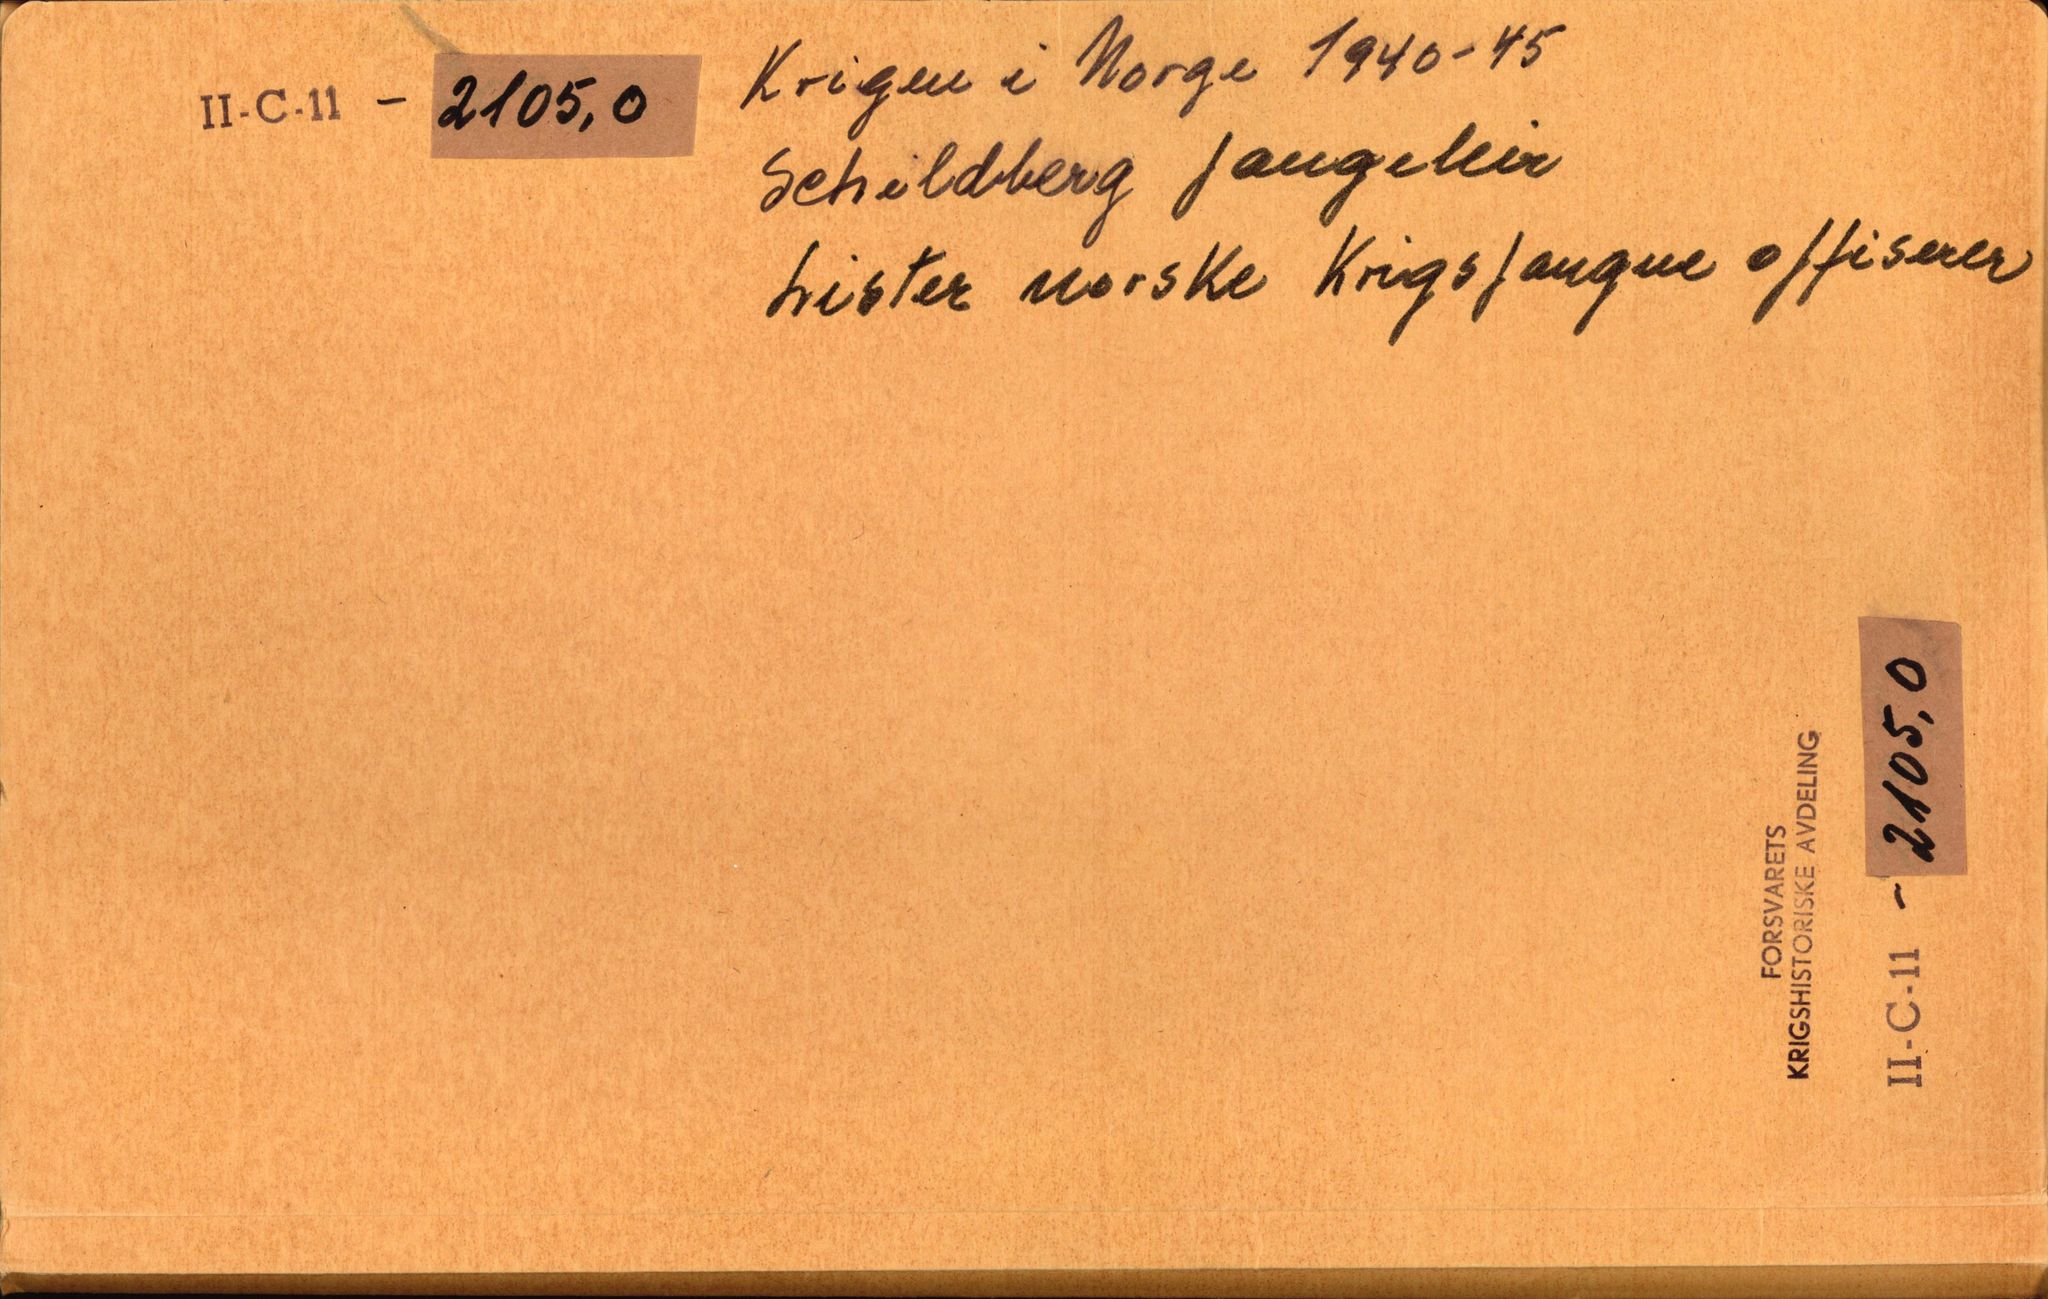 II-C-11 - 2105,0
Krigen i Norge 1940-45
Schildberg fangeleir
Lister norske Krigsfangne offiserer
FORSVARETS
KRIGSHISTORISKE AVDELING
II-C-11 - 2105,0